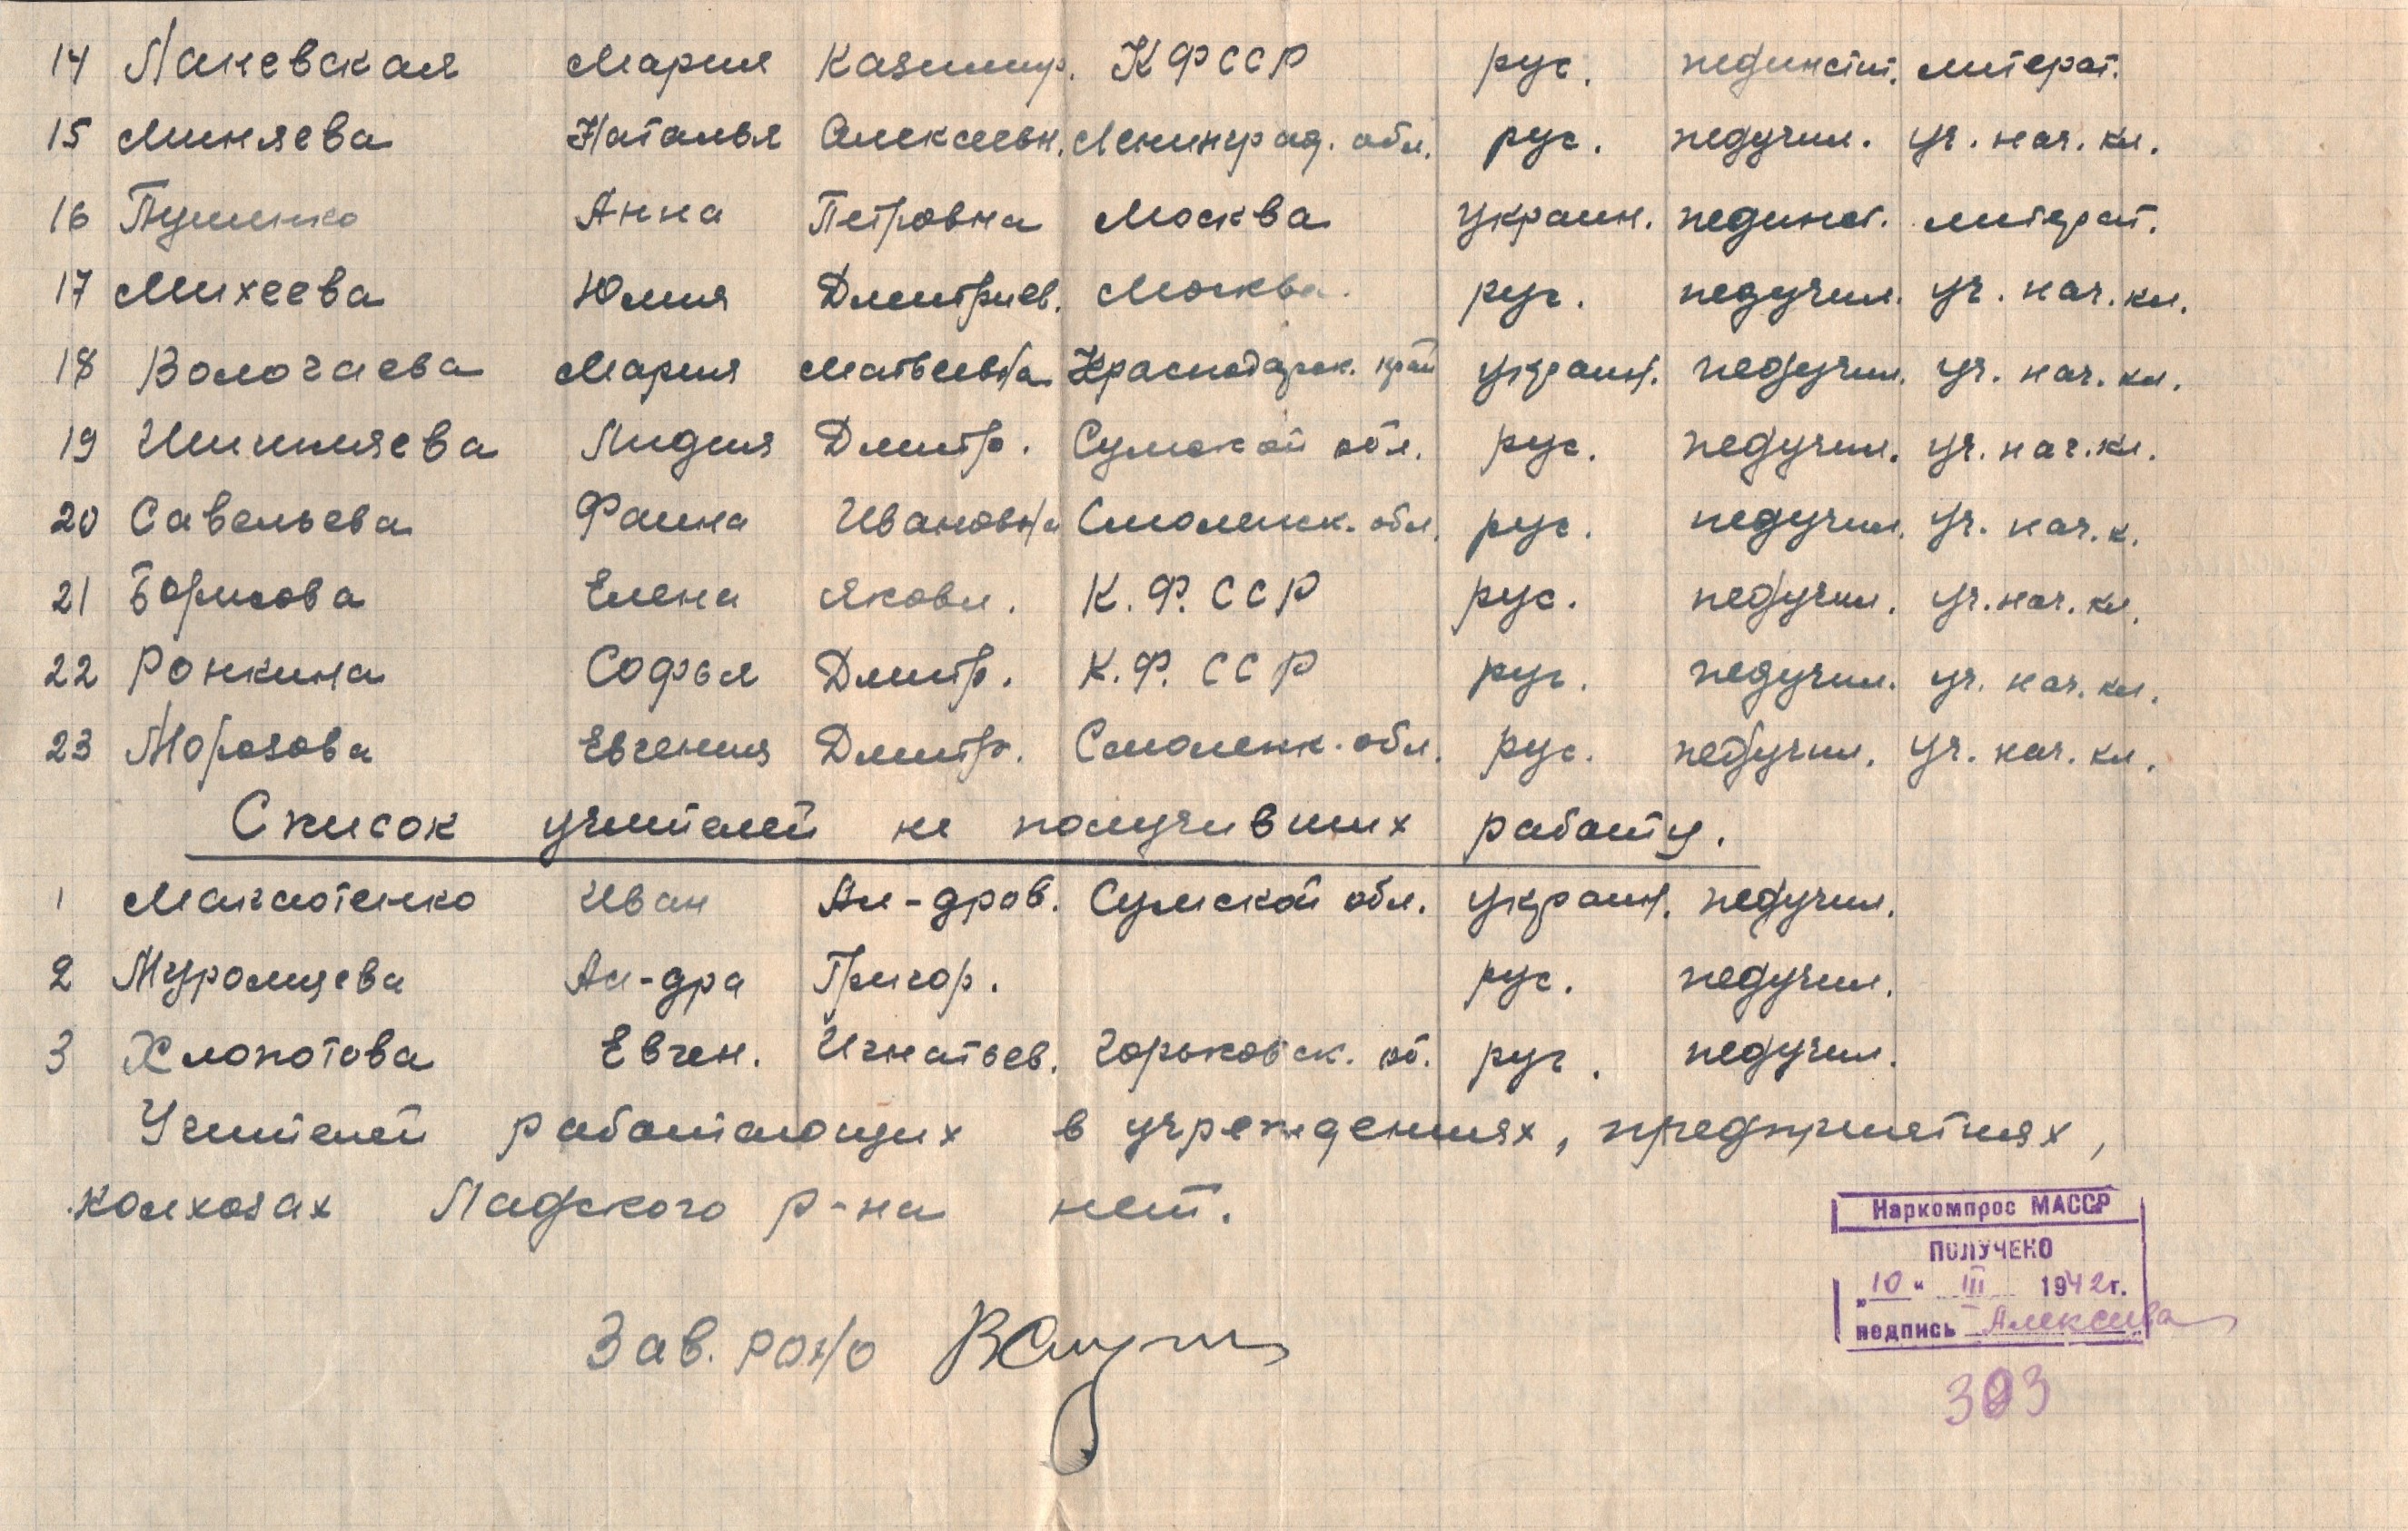 14 Паневская Мария Казимир. КФССР рус. пединстит. литерат.
15 Миняева Наталья Алексеевн. Ленинград. обл. рус. педучил. уч. нач. кл.
16 Анна Петровна Москва украин. пединст. литерат.
17 Михеева Юлия Дмитриев. Москва. рус. педучил. уч. нач. кл.
18 Волочаева Мария Матвеевна Краснодарск. край украин. педучил. уч. нач. кл.
19 Лидия Дмитр. Сумской обл. рус. педучил. уч. нач. кл.
20 Савельева Фаина Ивановна Смоленск. обл. рус. педучил. уч. нач. к.
21 Борисова Елена Яковл. К.Ф.ССР рус. педучил. уч. нач. кл.
22 Ронкина Софья Дмитр. К.Ф.ССР рус. педучил. уч. нач. кл.
23 Морозова Евгения Дмитр. Смоленск. обл. рус. педучил. уч. нач. кл.
Список учителей не получивших работу.
1 Иван Ал-дров. Сумской обл. украин. педучил.
2 Муромцева Ал-дра Григор. рус. педучил.
3 Хлопотова Евген. Игнатьев. Горьковск. об. рус. педучил.
Учителей работающих в учреждениях, предприятиях,
колхозах Ладского р-на нет.
Наркомпрос МАССР
ПОЛУЧЕНО
"10" III 1942г.
подпись Алексеева
Зав. РОНО